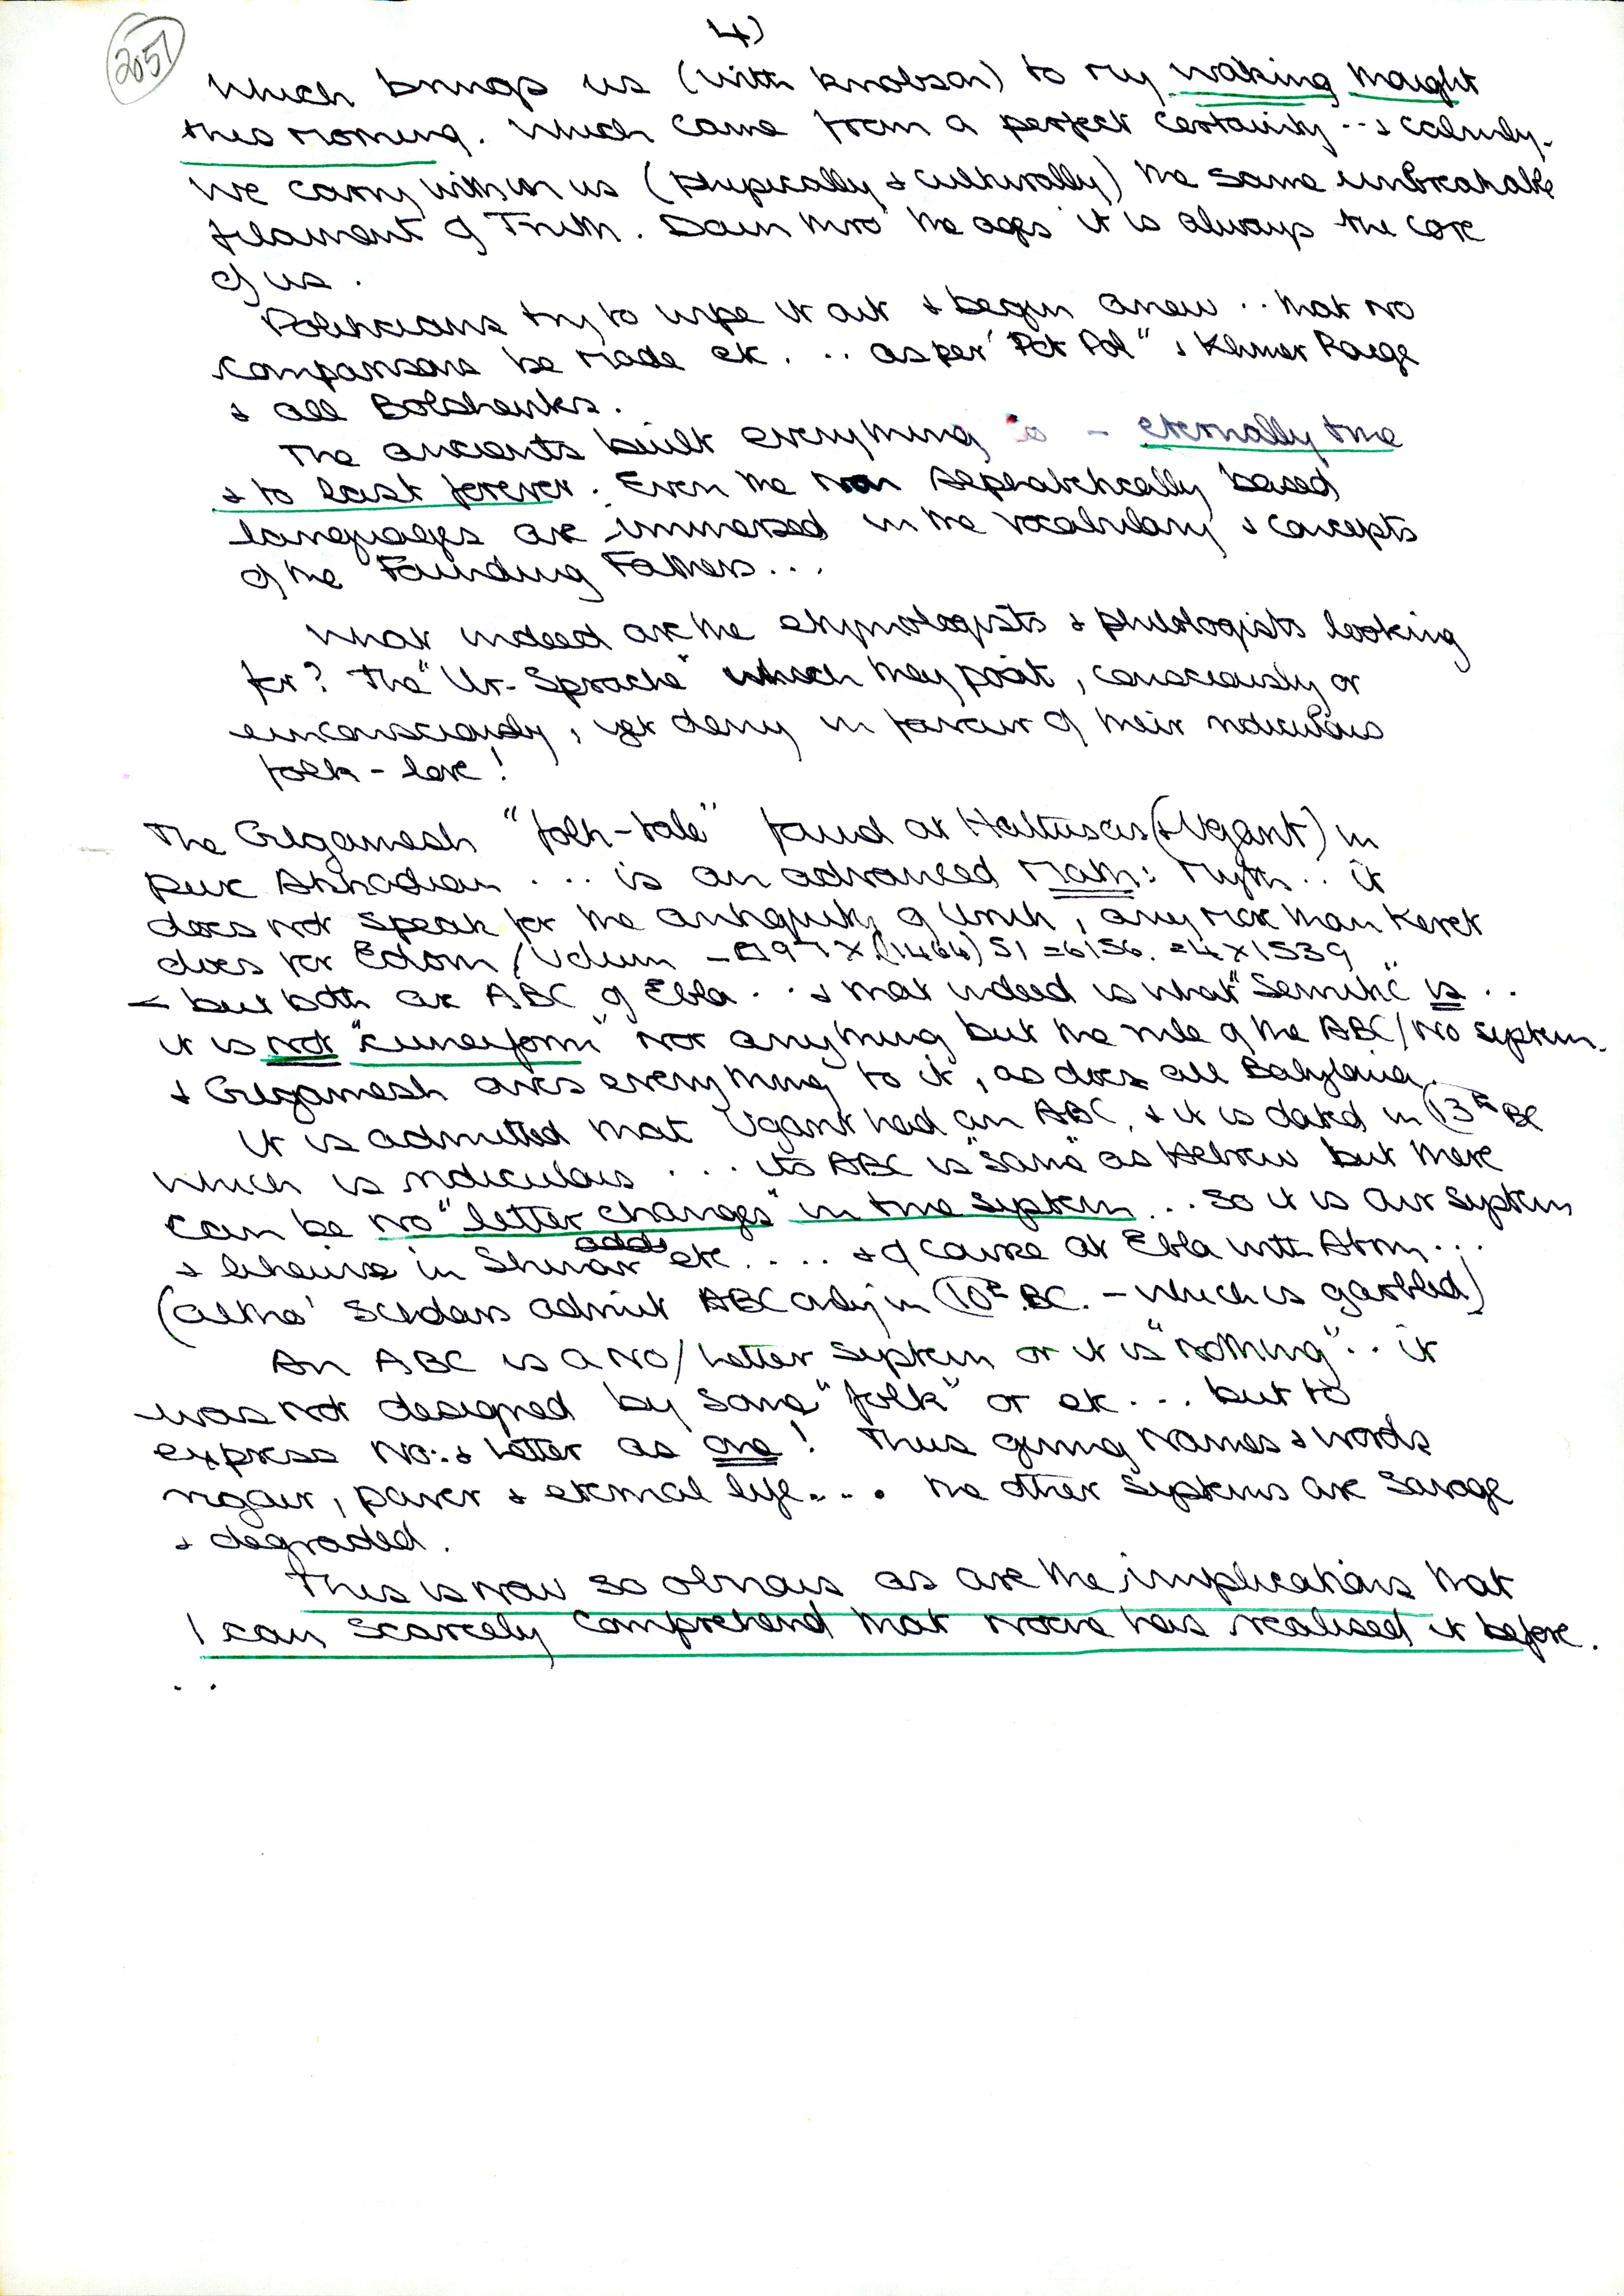 2057
4)
Which brings us (with knobs on) to my waking thought
this morning. Which came from a perfect certainty .. & calmly.
We carry within us (physically & culturally) the same unbreakable
filament of Truth. Down thro' the ages it is always the core
of us.
Politicians try to wipe it out & begin anew .. that no
comparisons be made etc. .. as per "Pot Pol" & Khmer Rouge
& all Bolsheviks.
The ancients built everything so - eternally true
& to last forever. Even the non Sephardically based
languages are immersed in the vocabulary & concepts
of the Founding Fathers...
What indeed are the etymologists & philologists looking
for? The "Ur-Sprache" which they posit, consciously or
unconsciously, yet deny in favour of their ridiculous
folk-lore!
The Gilgamesh "folk-tale" found at Hattusas (& Ugarit) in
pure Akkadian ... is an advanced Math: Myth .. it
does not speak for the antiquity of Uruk, any more than Keret
does for Edom / Udum - 97 X (1464) 51 = 6156. = 4 X 1539
- but both are ABC of Ebla .. & that indeed is what "Semitic" is ..
it is not "cuneiform" nor anything but the rule of the ABC/No system.
& Gilgamesh owes everything to it, as does all Babylonia.
It is admitted that Ugarit had an ABC, & it is dated in 13th BC
which is ridiculous ... its ABC is "same" as Hebrew but there
can be no "letter changes" in true system ... so it is our system
& likewise in Shinar etc .... & of course at Ebla with Abm...
(altho' Scholars admit ABC only in 10th BC. - which is garbled)
An ABC is a No/Letter system or it is "nothing" .. it
was not designed by some "folk" or etc... but to
express No: & Letter as one! Thus giving names & words
vigour, power & eternal life.... the other systems are savage
& degraded.
This is now so obvious as are the implications that
I can scarcely comprehend that no one has realised it before.
..